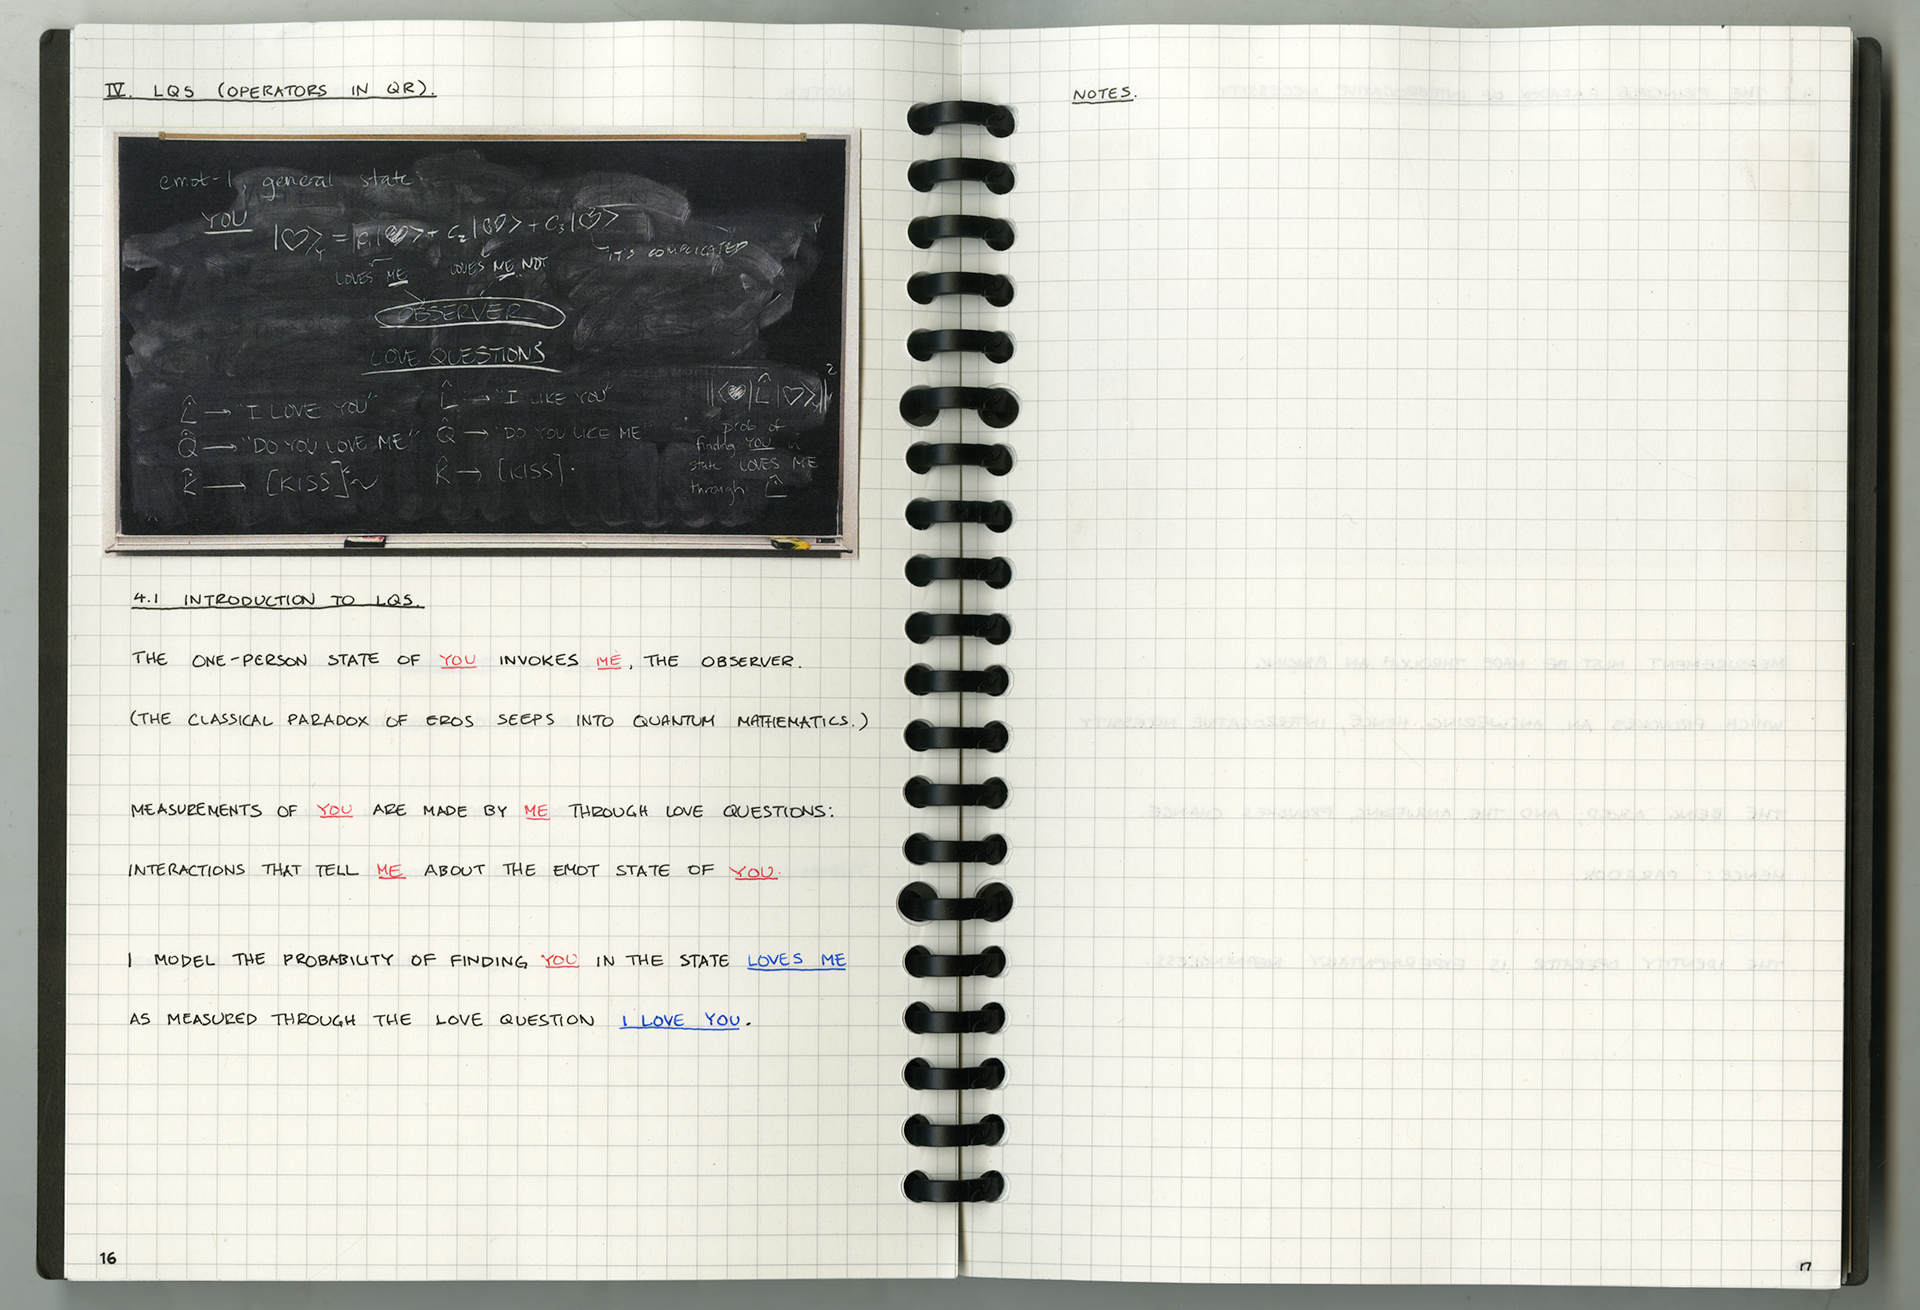 IV. LQS (OPERATORS IN QR).
emot-1, general state:
YOU
|♡>Y = |c₁|♥>+ c₂|♡>+ c₃|♡>
LOVES ME
LOVES ME NOT
IT'S COMPLICATED
OBSERVER
LOVE QUESTIONS
L̂ → "I LOVE YOU"
L̂ → "I LIKE YOU"
Q̂ → "DO YOU LOVE ME"
Q̂ → "DO YOU LIKE ME"
K̂ → [KISS]
K̂ → [KISS]
|<♥|L̂|♡>|²
prob of
finding YOU in
state LOVES ME
through L̂
4.1 INTRODUCTION TO LQS.
THE ONE-PERSON STATE OF YOU INVOKES ME, THE OBSERVER.
(THE CLASSICAL PARADOX OF EROS SEEPS INTO QUANTUM MATHEMATICS.)
MEASUREMENTS OF YOU ARE MADE BY ME THROUGH LOVE QUESTIONS:
INTERACTIONS THAT TELL ME ABOUT THE EMOT STATE OF YOU.
I MODEL THE PROBABILITY OF FINDING YOU IN THE STATE LOVES ME
AS MEASURED THROUGH THE LOVE QUESTION I LOVE YOU.
16
NOTES.
17